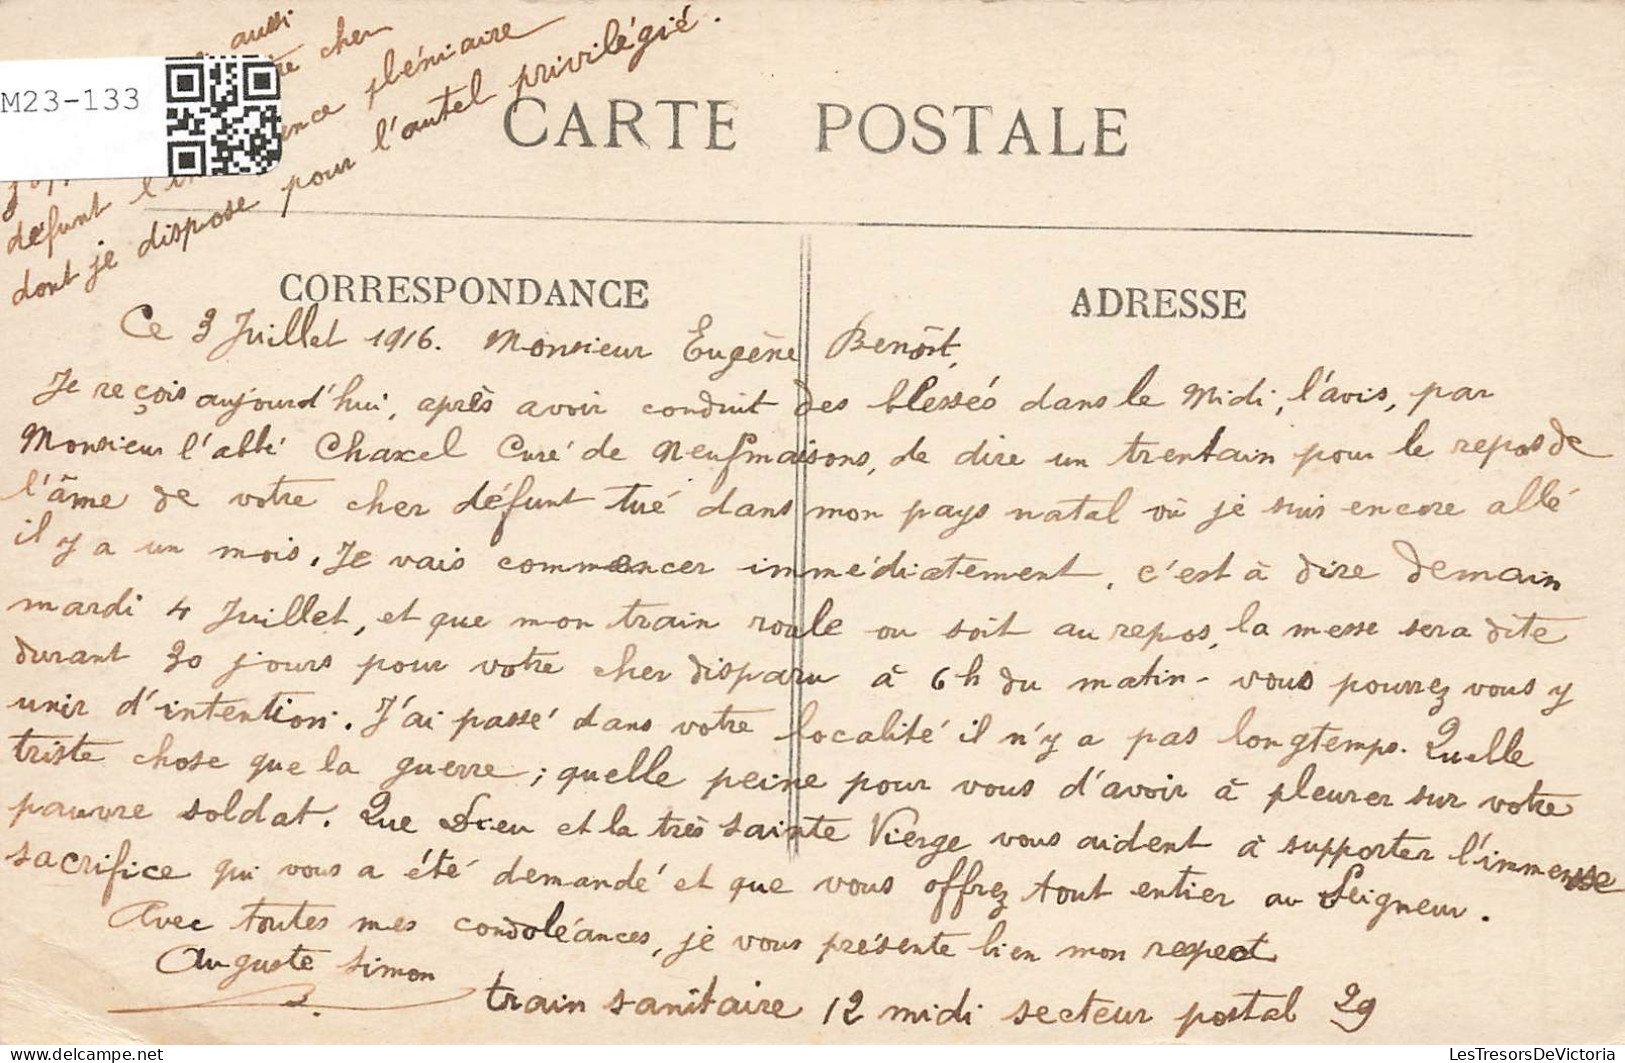 aussi
cher
M23-133
ence plénière
défunt
dont je dispose pour l'autel privilégié.
CARTE POSTALE
CORRESPONDANCE
ADRESSE
Ce 3 Juillet 1916. Monsieur Eugène Benoît,
Je reçois aujourd'hui, après avoir conduit des blessés dans le Midi, l'avis, par
Monsieur l'abbé Chaxel Curé de Neufmaisons, de dire un trentain pour le repos de
l'âme de votre cher défunt tué dans mon pays natal où je suis encore allé
il y a un mois. Je vais commencer immédiatement, c'est à dire demain
mardi 4 Juillet, et que mon train roule ou soit au repos, la messe sera dite
durant 30 jours pour votre cher disparu à 6h du matin - vous pourrez vous y
unir d'intention. J'ai passé dans votre localité il n'y a pas longtemps. Quelle
triste chose que la guerre ; quelle peine pour vous d'avoir à pleurer sur votre
pauvre soldat. Que Dieu et la très sainte Vierge vous aident à supporter l'immense
sacrifice qui vous a été demandé et que vous offrez tout entier au Seigneur.
Avec toutes mes condoléances, je vous présente bien mon respect
Auguste Simon
train sanitaire 12 midi secteur postal 29
LesTresorsDeVictoria